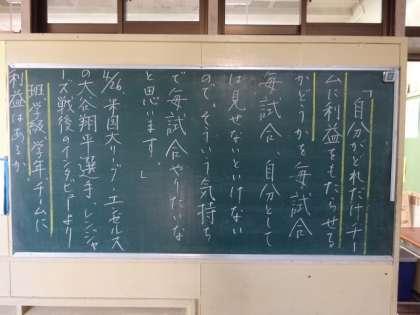 「自分がどれだけチー
ムに利益をもたらせる
かどうかを毎試合
毎試合、自分として
は見せないといけない
ので、そういう気持ち
で毎試合やりたいな
と思います。」
4/26 米国大リーグ・エンゼルス
の大谷翔平選手、レンジャ
ーズ戦後のインタビューより
班、学級、学年、チームに
利益はあるか